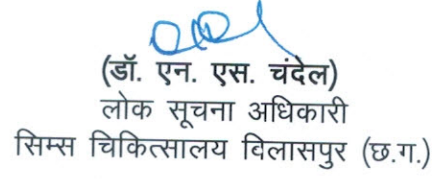 (डॉ. एन. एस. चंदेल)
लोक सूचना अधिकारी
सिम्स चिकित्सालय बिलासपुर (छ.ग.)